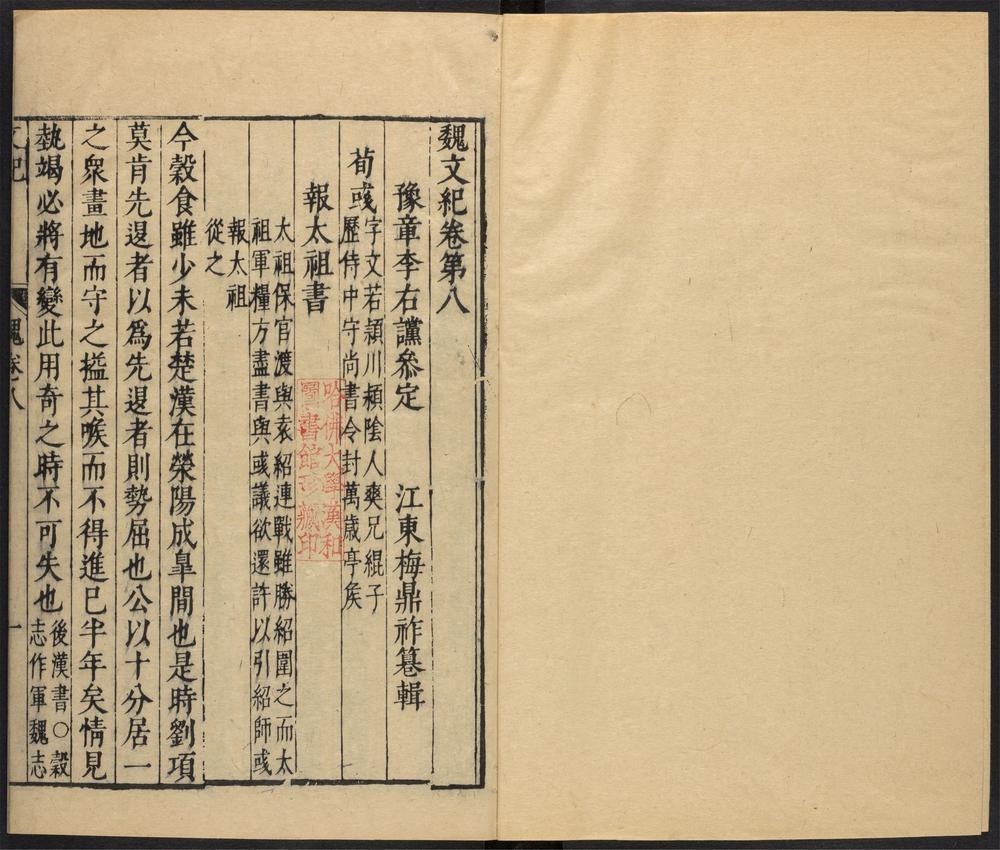 魏文紀卷第八
豫章李右讜叅定　江東梅鼎祚篹輯
荀彧
字文若頴川頴隂人爽兄緄子
歷侍中守尚書令封萬歲亭矦
報太祖書
太祖保官渡與袁紹連戰雖勝紹圍之而太
祖軍糧方盡書與彧議欲還許以引紹師彧
報太祖
從之
今穀食雖少未若楚漢在滎陽成臯間也是時劉項
莫肯先退者以爲先退者則勢屈也公以十分居一
之衆畫地而守之搤其喉而不得進已半年矣情見
埶竭必將有變此用奇之時不可失也
後漢書○穀
志作軍魏志
文紀
魏卷八
一
哈佛大學漢和
圖書館珍藏印